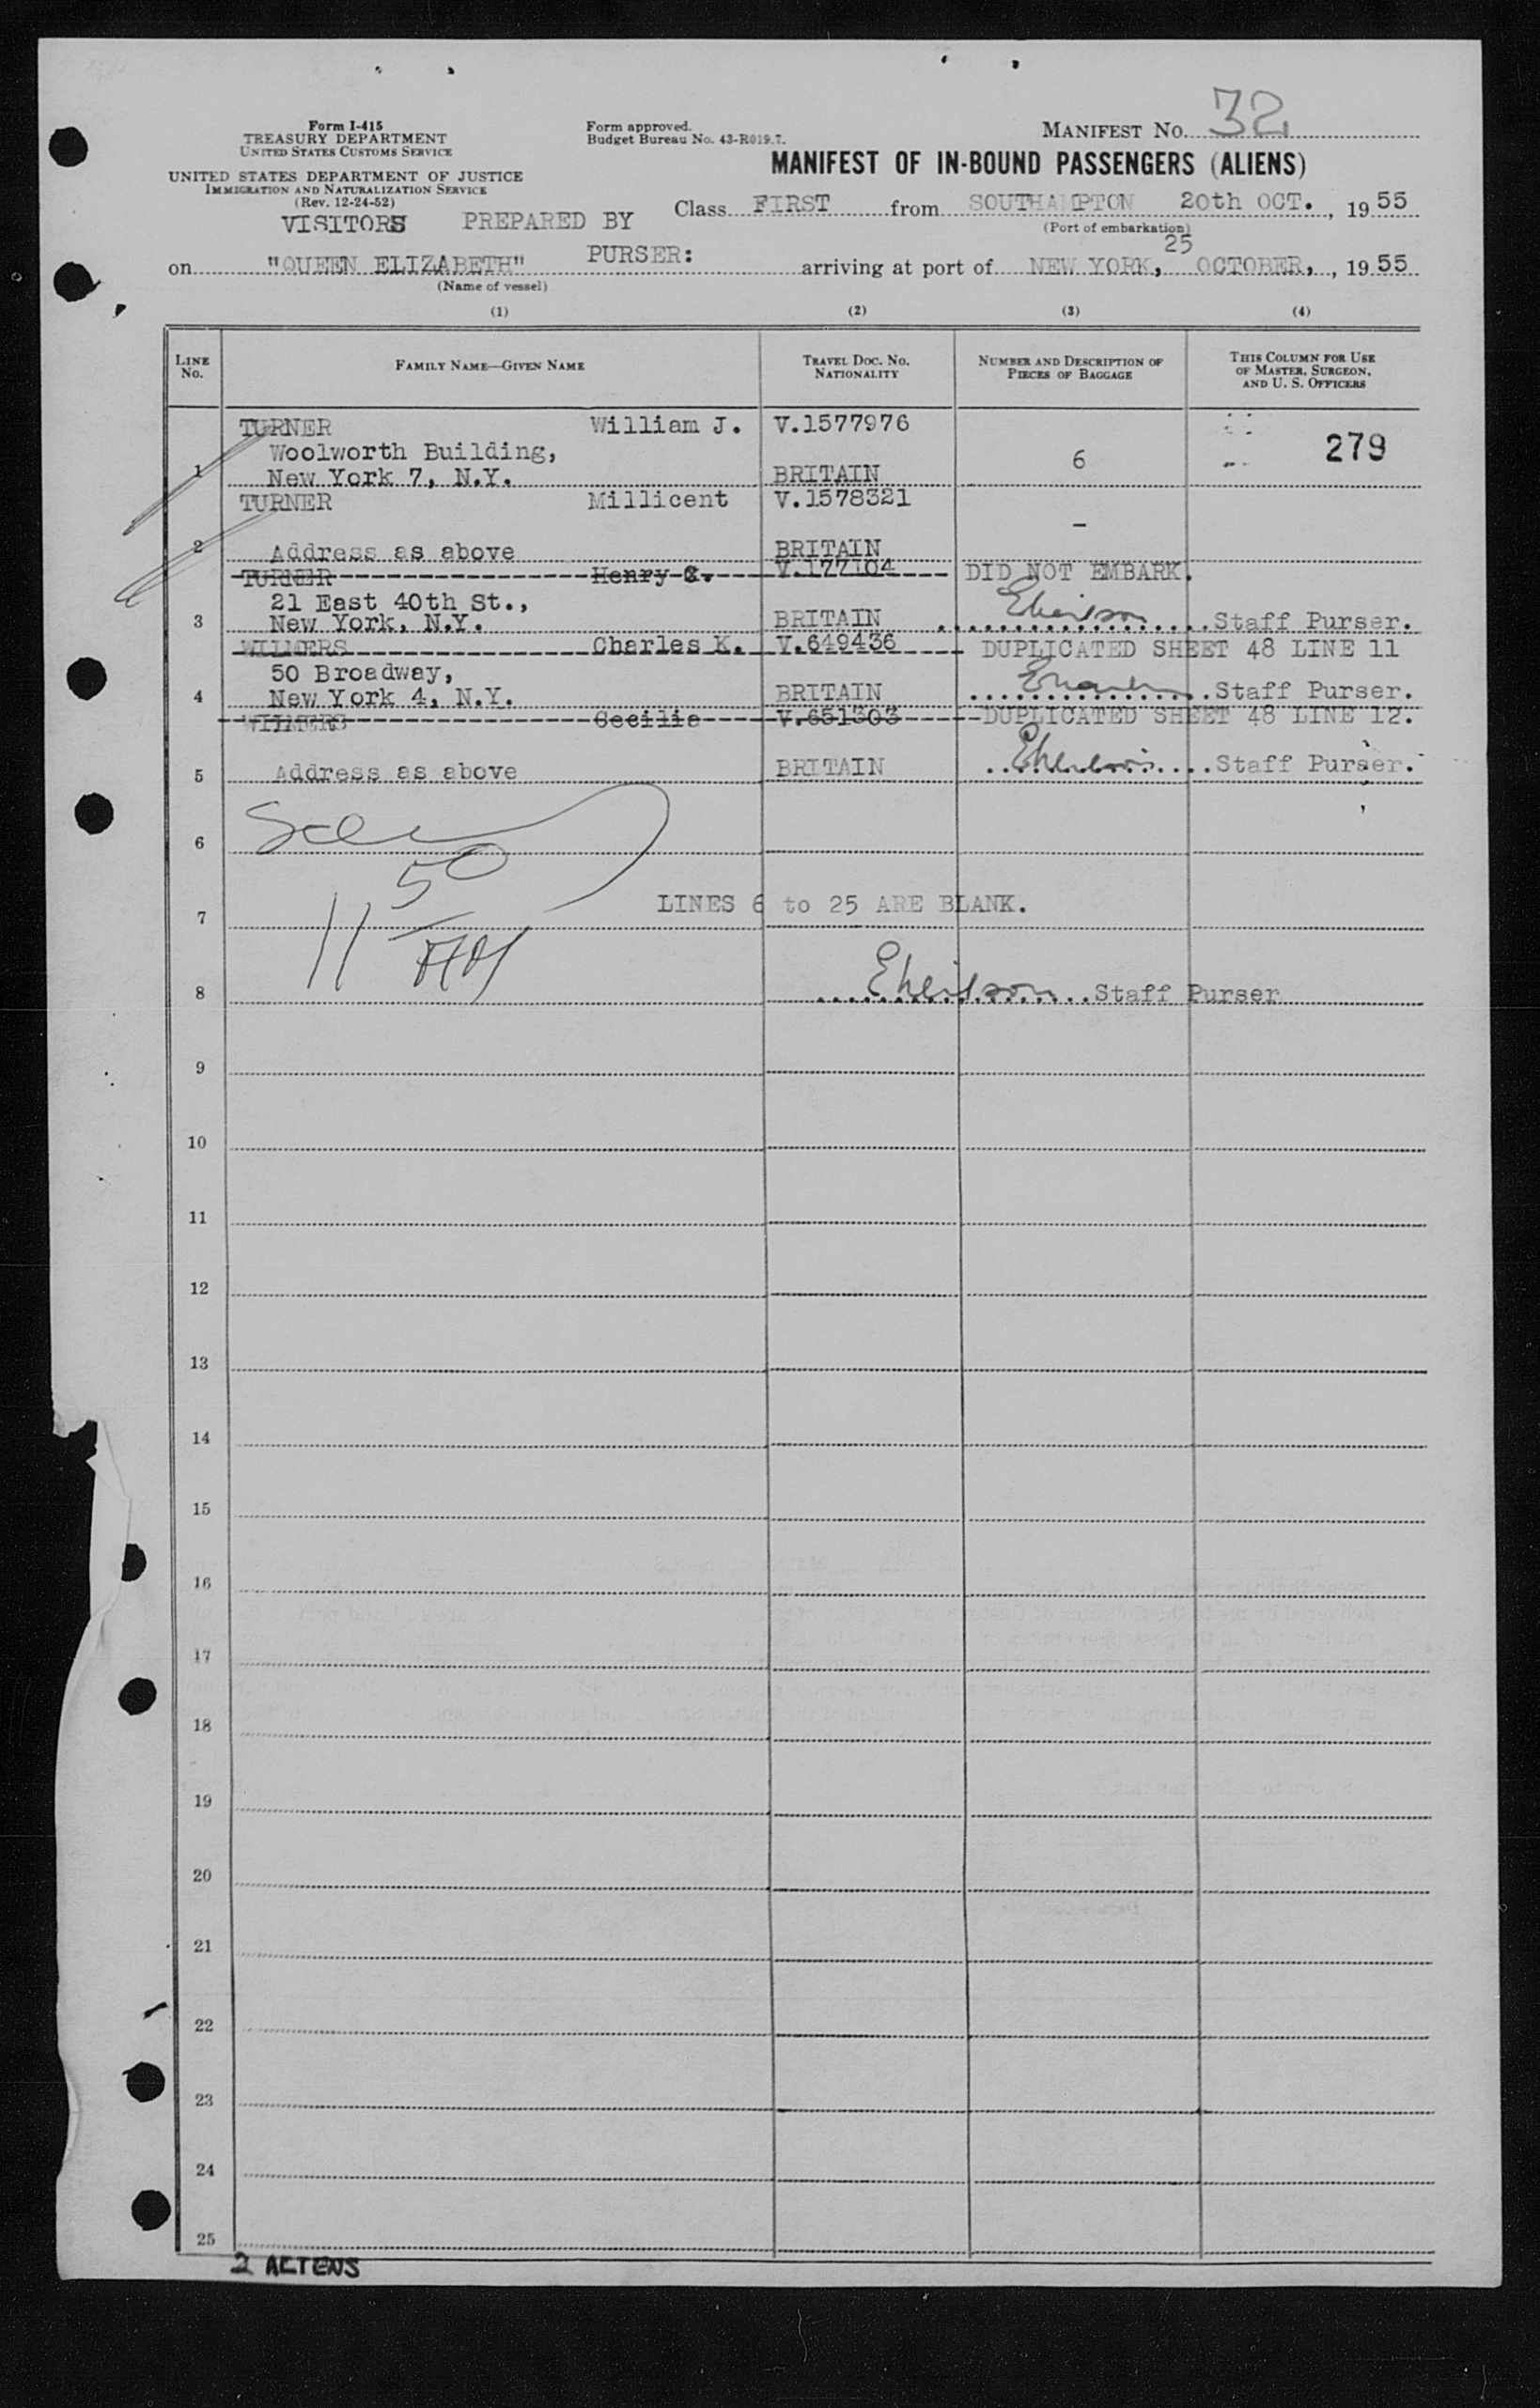 Form I-415
TREASURY DEPARTMENT
UNITED STATES CUSTOMS SERVICE
UNITED STATES DEPARTMENT OF JUSTICE
IMMIGRATION AND NATURALIZATION SERVICE
(Rev. 12-24-52)
Form approved.
Budget Bureau No. 43-R019.7.
MANIFEST NO. 32
MANIFEST OF IN-BOUND PASSENGERS (ALIENS)
VISITORS PREPARED BY
PURSER:
Class FIRST from SOUTHAMPTON 20th OCT., 1955
(Port of embarkation)
on "QUEEN ELIZABETH" arriving at port of NEW YORK, 25 OCTOBER, 1955
(Name of vessel)
(1) (2) (3) (4)
LINE No. FAMILY NAME—GIVEN NAME TRAVEL DOC. NO. NATIONALITY NUMBER AND DESCRIPTION OF PIECES OF BAGGAGE THIS COLUMN FOR USE OF MASTER, SURGEON, AND U. S. OFFICERS
TURNER William J. V.1577976
Woolworth Building, 279
1 New York 7, N.Y. BRITAIN 6
TURNER Millicent V.1578321
-
2 Address as above BRITAIN
TURNER Henry C. V.177104 DID NOT EMBARK.
21 East 40th St.,
3 New York, N.Y. BRITAIN Staff Purser.
WILMERS Charles K. V.649436 DUPLICATED SHEET 48 LINE 11
50 Broadway,
4 New York 4, N.Y. BRITAIN Staff Purser.
WILMERS Cecilie V.651303 DUPLICATED SHEET 48 LINE 12.
5 Address as above BRITAIN Staff Purser.
6
50
7 LINES 6 to 25 ARE BLANK.
11
8 Staff Purser
9
10
11
12
13
14
15
16
17
18
19
20
21
22
23
24
25
2 ALIENS